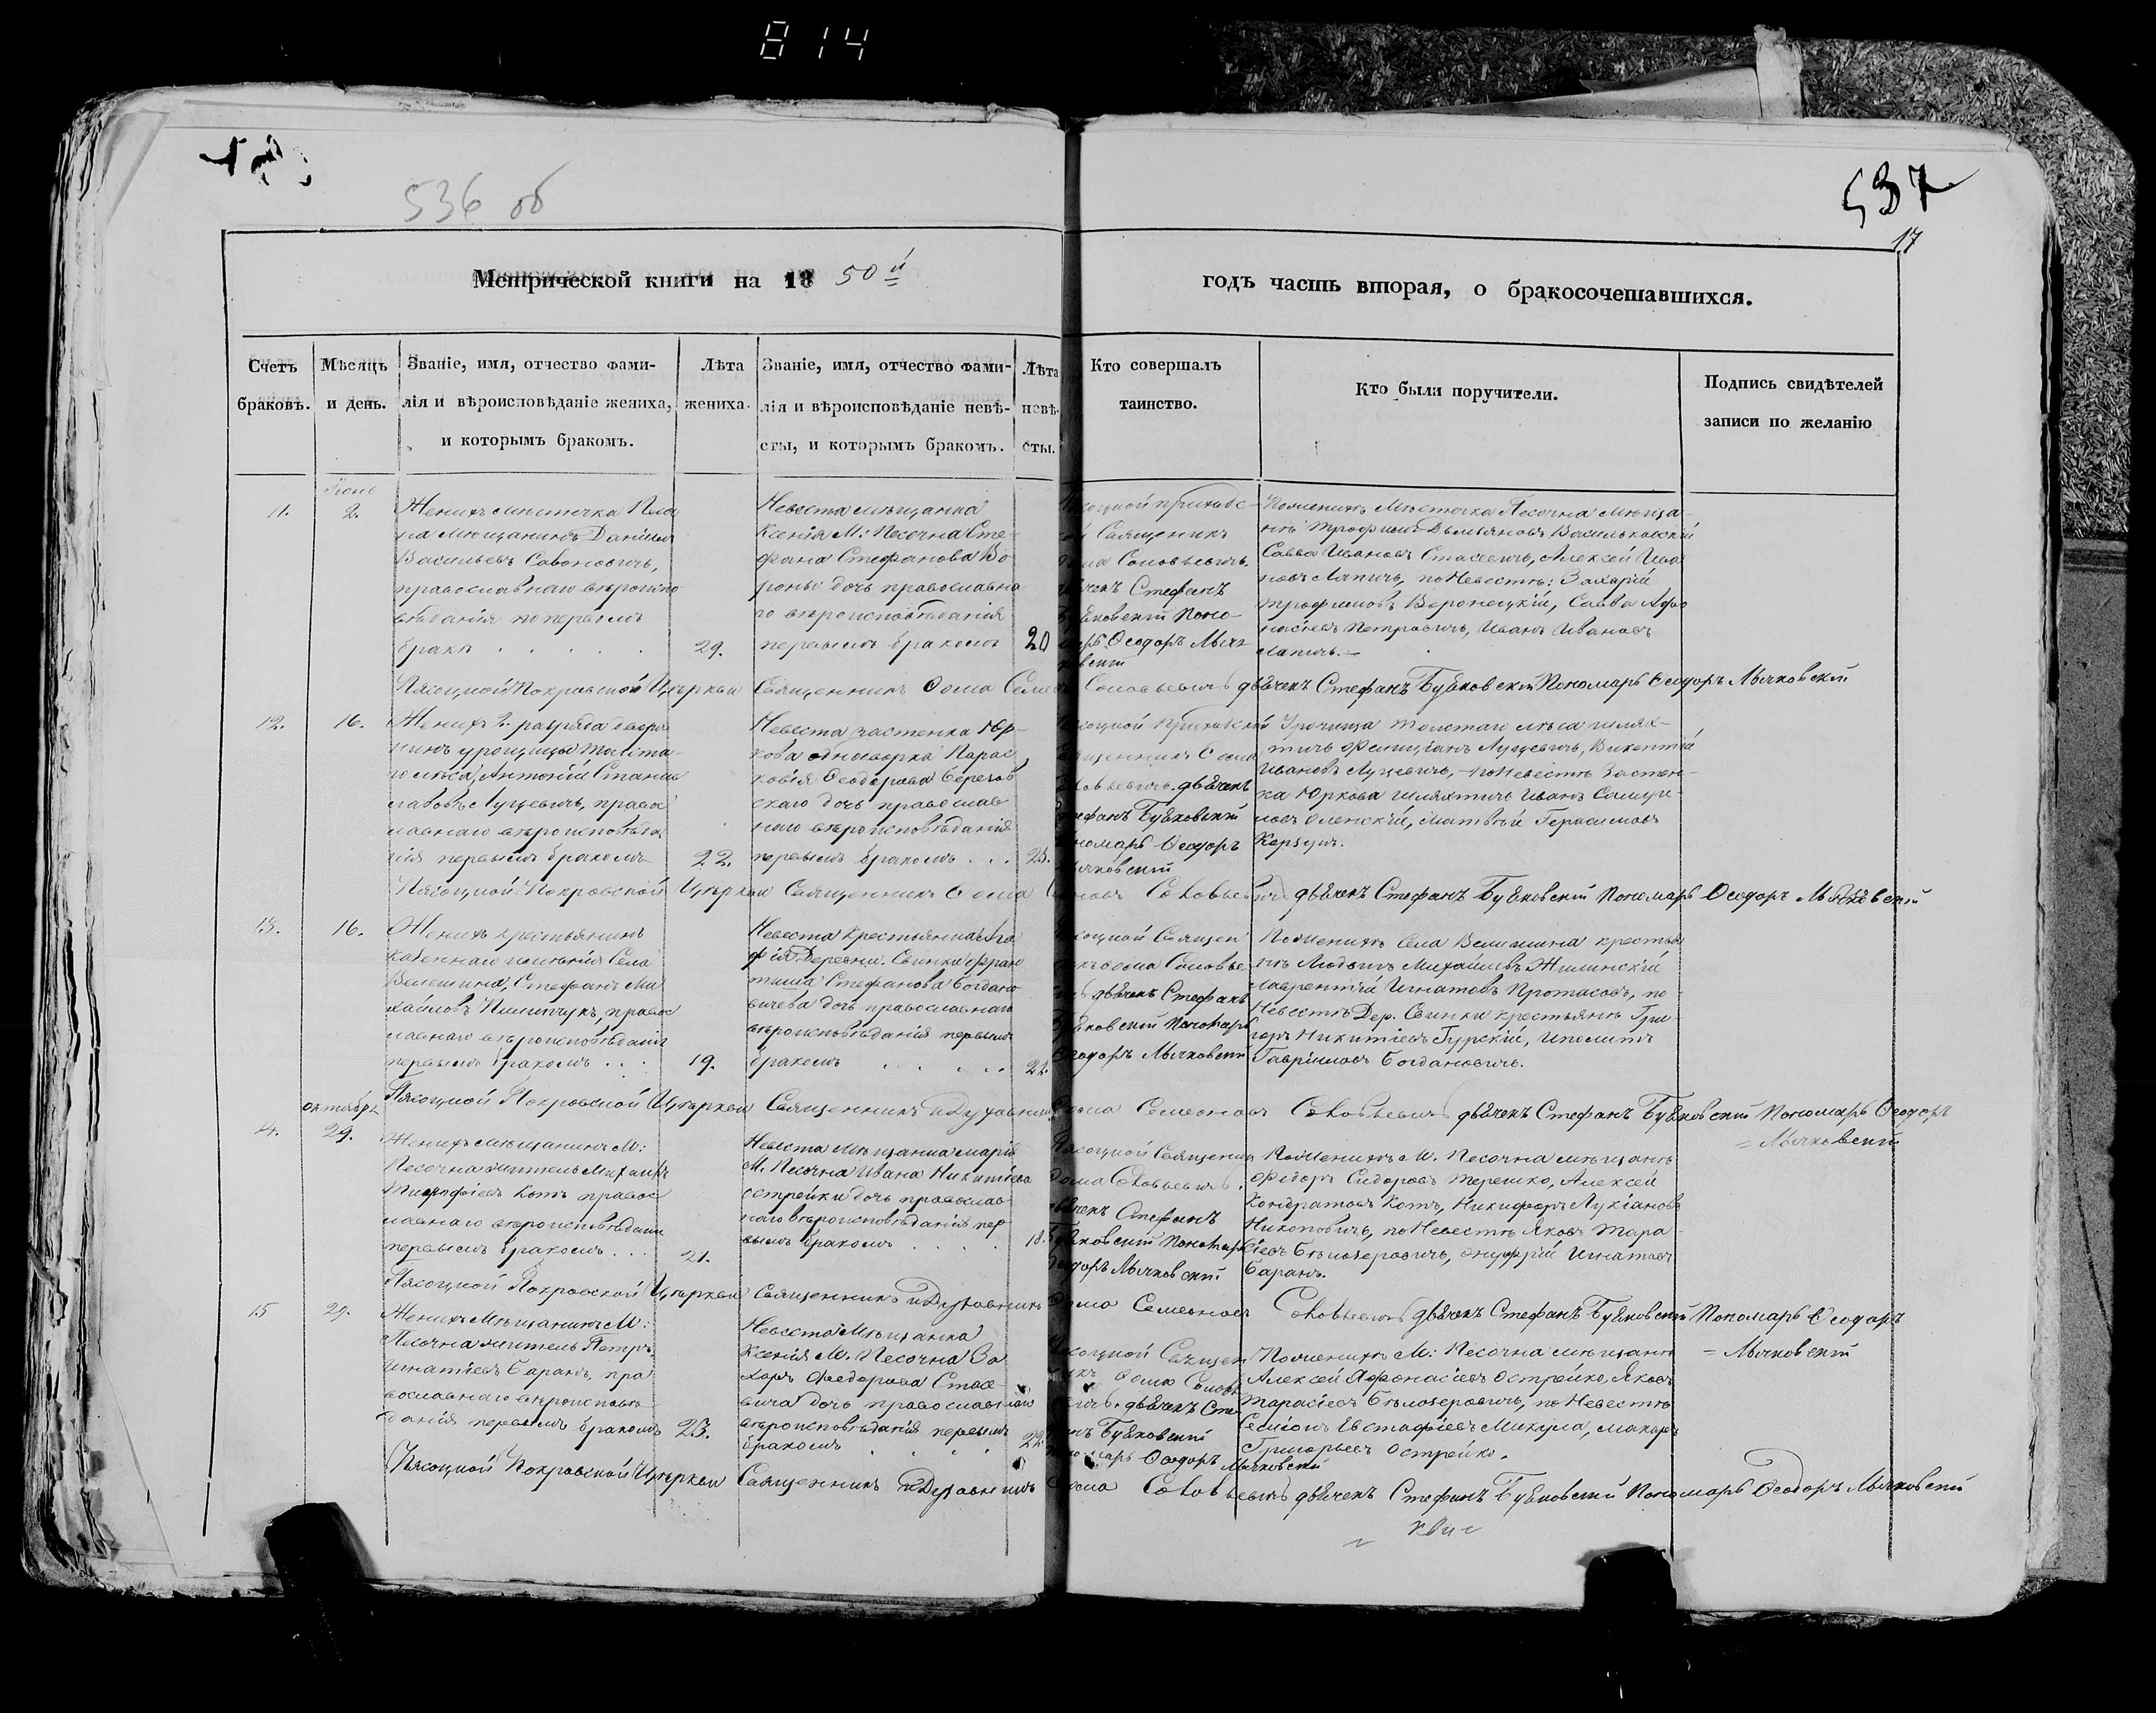 814
536 об
537
17
Метрической книги на 1850й
годъ часть вторая, о бракосочетавшихся.
Счетъ браковъ.
Мѣсяцъ и день.
Званіе, имя, отчество фами-
лія и вѣроисповѣданіе жениха,
и которымъ бракомъ.
Лѣта
жениха.
Званіе, имя, отчество фами-
лія и вѣроисповѣданіе невѣ-
сты, и которымъ бракомъ.
Лѣта
невѣ-
сты.
Кто совершалъ
таинство.
Кто были поручители.
Подпись свидѣтелей
записи по желанію
11.
Іюнь
2.
Женихъ мѣстечка Песо
на мѣщанинъ Даніилъ
Васильевъ Савоневичь,
православнаго вѣроиспо
вѣданія по первомъ
бракѣ . . . . .
29.
Невеста мѣщанка
Ксенія М: Песочна Сте-
фана Стефанова Во
роны дочь православна
го вѣроисповѣданія
первымъ бракомъ
20
Священникъ
Соловьевичь.
Стефанъ
Поно-
Ѳеодоръ Мыч
Поженихѣ Мѣстечка Песочна мѣща-
нѣ Трофимъ Демьяновъ Васильковскій
Савва Ивановъ Стасевичь, Алексей Ива
новъ Лапичь, по Невестѣ: Захарій
Трофимовъ Воронецкій, Савва Афо
насіевъ Петровичь, Иванъ Ивановъ
Лапичь.
Пясоцкой Покровской Церкви Священникъ Ѳома Соловьевичь дьячекъ Стефанъ Бубновскій Пономарь Ѳеодоръ Мычковскій
12.
16.
Женихъ 2. разряда дворя
нинъ урочища Толста-
го лѣса Антоній Станис
лавовъ Луцевичь, правос
лавнаго вѣроисповѣда
нія первымъ бракомъ
22.
Невеста застенка Юр-
кова однодворка Парас
ковія Ѳеодорова Березов
скаго дочь православ
наго вѣроисповѣданія
первымъ бракомъ . . .
23.
дьячекъ
Бубновскій
Ѳеодоръ
Урочища Толстаго лѣса шлях-
тичь Фелиціанъ Луцевичь, Викентій
Ивановъ Луцевичь, по Невестѣ Застен-
ка Юркова шляхтичь Иванъ Самуи-
ловъ Оленскій, Матвѣй Герасимовъ
Корзунъ.
Пясоцкой Покровской Церкви Священникъ Ѳома Соловьевичь дьячекъ Стефанъ Бубновскій Пономарь Ѳеодоръ Мычковскій
13.
16.
Женихъ крестьянинъ
казеннаго имѣнія Села
Велешина, Стефанъ Ми
хайловъ Пилипчукъ, правос
лавнаго вѣроисповѣданія
первымъ бракомъ . . .
19.
Невеста крестьянка Ага
фія Деревни Свинки Фран
тиша Стефанова Богдано
вичева дочь православнаго
вѣроисповѣданія первымъ
бракомъ . . . . .
22.
Священ
Ѳома Соловье
дьячекъ Стефанъ
Пономарь
Ѳеодоръ Мычковскій
Поженихѣ Села Велешина крестья
нѣ Людвигъ Михайловъ Жилинскій
Лаврентій Игнатовъ Протасовъ, по
Невестѣ Дер. Свинки крестьянѣ Гри
горъ Никитіевъ Гурскій, Иполитъ
Гавріиловъ Богдановичь.
Пясоцкой Покровской Церкви Священникъ и Духовникъ Ѳома Семеоновъ Соловьевичь дьячекъ Стефанъ Бубновскій Пономарь Ѳеодоръ
= Мычковскій
14.
октября
29.
Женихъ мѣщанинъ М:
Песочна житель Михаилъ
Котъ правос
лавнаго вѣроисповѣданія
первымъ бракомъ . . .
21.
Невеста мѣщанка Марія
М. Песочна Ивана Никитіева
Острейки дочь православ
наго вѣроисповѣданія пер
вымъ бракомъ . . . .
18.
Пясоцкой Священник
Ѳома Соловьевичь.
дьячекъ Стефанъ
Бубновскій Пономарь
Ѳеодоръ Мычковскій
Поженихѣ М. Песочна мѣщанѣ
Федоръ Сидоровъ Терешко, Алексей
Кондратовъ Котъ, Никифоръ Лукіановъ
Никоновичь, по Невестѣ Яковъ Тара-
сіевъ Бѣлозеровичь, Онуфрій Игнатовъ
Баранъ.
Пясоцкой Покровской Церкви Священникъ и Духовникъ Ѳома Семеоновъ Соловьевичь дьячекъ Стефанъ Бубновскій Пономарь Ѳеодоръ
= Мычковскій
15
29.
Женихъ мѣщанинъ М:
Песочна житель Петръ
Игнатіевъ Баранъ, пра
вославнаго вѣроисповѣ
данія первымъ бракомъ
23.
Невеста мѣщанка
Ксенія М. Песочна За
харъ Феодорова Стасе-
вича дочь православнаго
вѣроисповѣданія первымъ
бракомъ . . . .
22.
Ѳома Солов
дьячекъ Сте
Бубновскій
Ѳеодоръ Мычковскій
Поженихѣ М: Песочна мѣщанѣ
Алексей Афонасіевъ Острейко, Яковъ
Тарасіевъ Бѣлозеровичь, по Невестѣ
Семіонъ Евстафіевъ Микула, Макаръ
Григорьевъ Острейко.
Пясоцкой Покровской Церкви Священникъ и Духовникъ Ѳома Соловьевичь дьячекъ Стефанъ Бубновскій Пономарь Ѳеодоръ Мычковскій